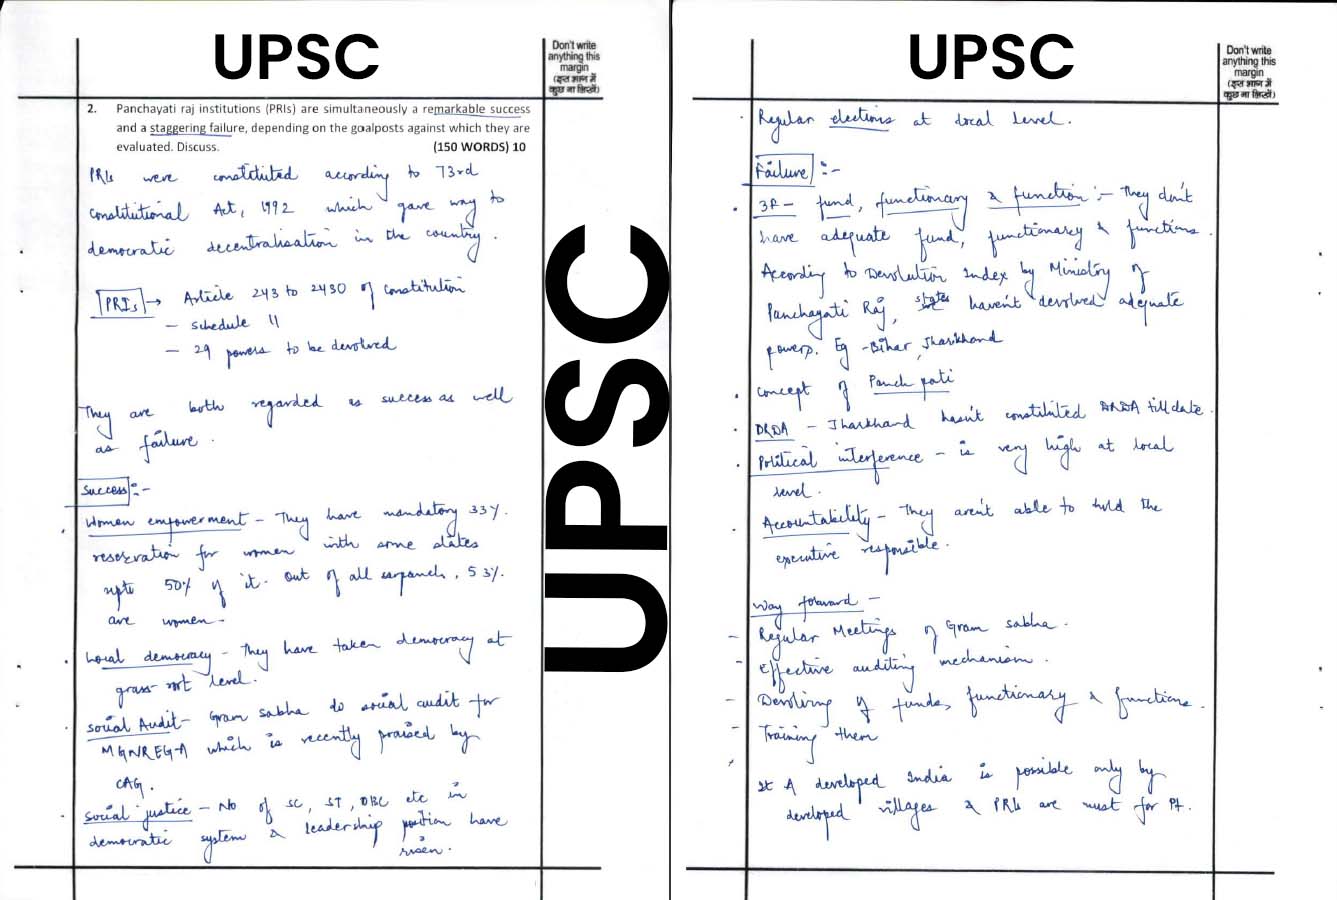 UPSC
Don't write
anything this
margin
(इस भाग में
कुछ ना लिखें)
2. Panchayati raj institutions (PRIs) are simultaneously a remarkable success
and a staggering failure, depending on the goalposts against which they are
evaluated. Discuss. (150 WORDS) 10
PRIs were constituted according to 73rd
Constitutional Act, 1992 which gave way to
democratic decentralisation in the country.
PRIs → Article 243 to 243O of constitution
- schedule 11
- 29 powers to be devolved
They are both regarded as success as well
as failure.
Success :-
Women empowerment - They have mandatory 33%.
reservation for women with some states
upto 50% of it. Out of all sarpanch, 53%.
are women.
Local democracy - They have taken democracy at
grass root level.
Social Audit - Gram sabha do social audit for
MGNREGA which is recently praised by
CAG.
Social justice - No of SC, ST, OBC etc in
democratic system & leadership position have
risen.
UPSC
UPSC
Don't write
anything this
margin
(इस भाग में
कुछ ना लिखें)
Regular elections at local level.
Failure :-
3F - fund, functionary & function :- They don't
have adequate fund, functionary & functions.
According to Devolution Index by Ministry of
Panchayati Raj, states haven't devolved adequate
powers. Eg - Bihar, Jharkhand
Concept of Panch pati
DRDA - Jharkhand hasn't constituted DRDA till date.
Political interference - is very high at local
level.
Accountability - They aren't able to hold the
executive responsible.
Way forward -
- Regular Meetings of Gram sabha.
- Effective auditing mechanism.
- Devolving of funds, functionary & functions.
- Training them
A developed India is possible only by
developed villages & PRIs are must for it.